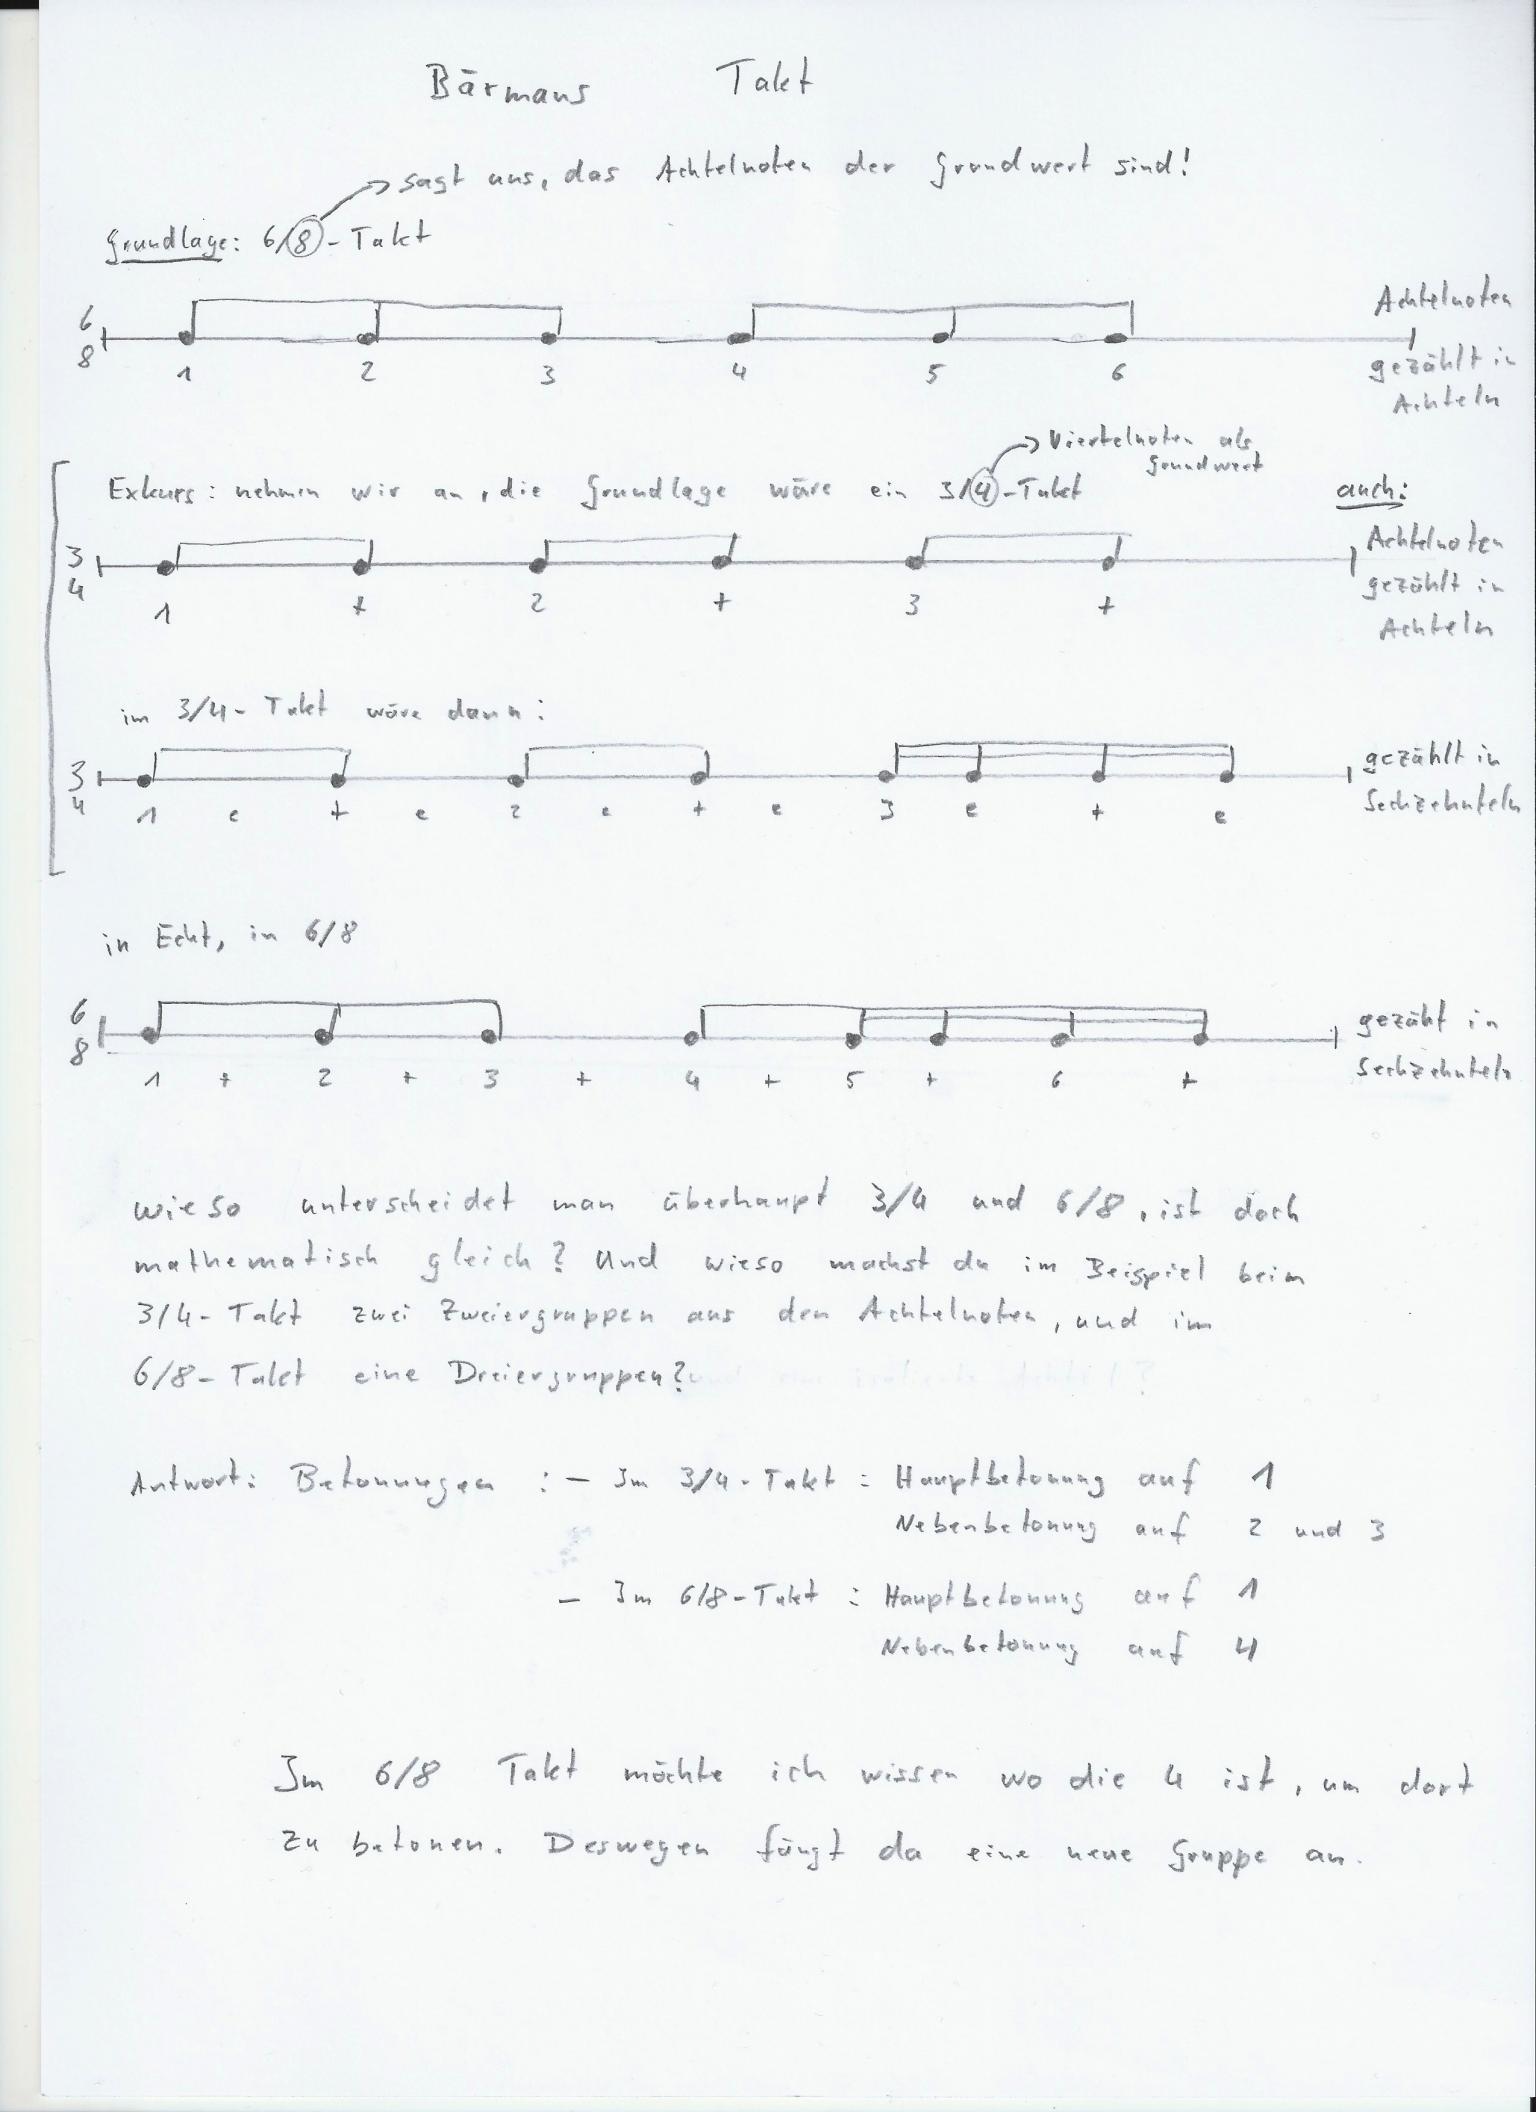 Bärmans Takt
sagt uns, das Achtelnoten der Grundwert sind!
Grundlage: 6/8-Takt
6
8
1 2 3 4 5 6
Achtelnoten
gezählt in
Achteln
Viertelnoten als
Grundwert
Exkurs: nehmen wir an, die Grundlage wäre ein 3/4-Takt
auch:
3
4
1 + 2 + 3 +
Achtelnoten
gezählt in
Achteln
im 3/4-Takt wäre dann:
3
4
1 e + e 2 e + e 3 e + e
gezählt in
Sechzehnteln
in Echt, in 6/8
6
8
1 + 2 + 3 + 4 + 5 + 6 +
gezählt in
Sechzehnteln
wieso unterscheidet man überhaupt 3/4 und 6/8, ist doch
mathematisch gleich? Und wieso machst du im Beispiel beim
3/4-Takt zwei Zweiergruppen aus den Achtelnoten, und im
6/8-Takt eine Dreiergruppen?
Antwort: Betonungen : - Im 3/4-Takt : Hauptbetonung auf 1
Nebenbetonung auf 2 und 3
- Im 6/8-Takt : Hauptbetonung auf 1
Nebenbetonung auf 4
Im 6/8 Takt möchte ich wissen wo die 4 ist, um dort
zu betonen. Deswegen fängt da eine neue Gruppe an.